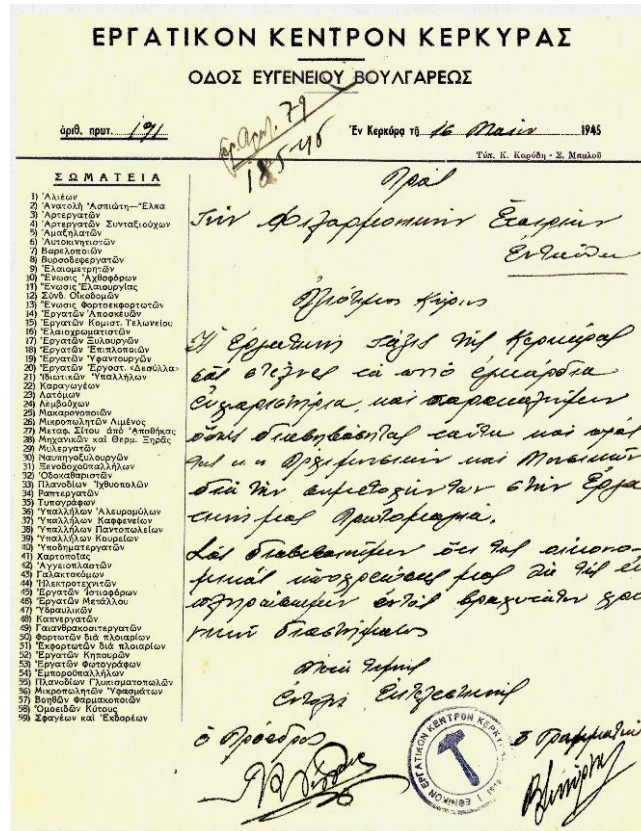 ΕΡΓΑΤΙΚΟΝ ΚΕΝΤΡΟΝ ΚΕΡΚΥΡΑΣ
ΟΔΟΣ ΕΥΓΕΝΕΙΟΥ ΒΟΥΛΓΑΡΕΩΣ
ἀριθ. πρωτ. 191
79
18-5-45
Ἐν Κερκύρᾳ τῇ 16 Μαΐου 1945
Τύπ. Κ. Καρύδη - Σ. Μπαλοῦ
ΣΩΜΑΤΕΙΑ
1) Ἁλιέων
2) Ἀνατολή Ἀσπιώτη—Ἔλκα
3) Ἀρτεργατῶν
4) Ἀρτεργατῶν Συνταξιούχων
5) Ἁμαξηλατῶν
6) Αὐτοκινητιστῶν
7) Βαρελοποιῶν
8) Βυρσοδεφεργατῶν
9) Ἐλαιομετρητῶν
10) Ἕνωσις Ἀχθοφόρων
11) Ἕνωσις Ἐλαιουργίας
12) Σύνδ. Οἰκοδομῶν
13) Ἕνωσις Φορτοεκφορτωτῶν
14) Ἐργατῶν Ἀποσκευῶν
15) Ἐργατῶν Κομιστ. Τελωνείου
16) Ἐλαιοχρωματιστῶν
17) Ἐργατῶν Ξυλουργῶν
18) Ἐργατῶν Ἐπιπλοποιῶν
19) Ἐργατῶν Ὑφαντουργῶν
20) Ἐργατῶν Ἐργοστ. «Δεσύλλα»
21) Ἰδιωτικῶν Ὑπαλλήλων
22) Καραγωγέων
23) Λατόμων
24) Λεμβούχων
25) Μακαρονοποιῶν
26) Μικροπωλητῶν Λιμένος
27) Μεταφ. Σίτου ἀπό Ἀποθήκας
28) Μηχανικῶν καί Θερμ. Ξηρᾶς
29) Μυλεργατῶν
30) Ναυπηγοξυλουργῶν
31) Ξενοδοχοϋπαλλήλων
32) Ὁδοκαθαριστῶν
33) Πλανοδίων Ἰχθυοπωλῶν
34) Ραπτεργατῶν
35) Τυπογράφων
36) Ὑπαλλήλων Ἀλευρομύλων
37) Ὑπαλλήλων Καφφενείων
38) Ὑπαλλήλων Παντοπωλείων
39) Ὑπαλλήλων Κουρείων
40) Ὑποδηματεργατῶν
41) Χαρτοποιΐας
42) Ἀγγειοπλαστῶν
43) Γαλακτοκόμων
44) Ἠλεκτροτεχνιτῶν
45) Ἐργατῶν Ἱστιοφόρων
46) Ἐργατῶν Μετάλλου
47) Ὑδραυλικῶν
48) Καπνεργατῶν
49) Γαιανθρακοσιτεργατῶν
50) Φορτωτῶν διά πλοιαρίων
51) Ἐκφορτωτῶν διά πλοιαρίων
52) Ἐργατῶν Κηπουρῶν
53) Ἐργατῶν Φωτογράφων
54) Ἐμποροϋπαλλήλων
55) Πλανοδίων Γλυκισματοπωλῶν
56) Μικροπωλητῶν Ὑφασμάτων
57) Βοηθῶν Φαρμακοποιῶν
58) Ὁμοειδῶν Κύτους
59) Σφαγέων καί Ἐκδορέων
Πρός
Τήν Φιλαρμονικήν Ἑταιρείαν
Ἐνταῦθα
Ἀξιότιμοι Κύριοι
Ἡ Ἐργατική τάξις τῆς Κερκύρας
σᾶς στέλνει τά πιό ἐγκάρδια
εὐχαριστήρια καί παρακαλοῦμεν
ὅπως διαβηβάσητε ταῦτα καί πρός
τούς κ.κ Ἀρχιμουσικόν καί Μουσικούς
διά τήν συμετοχήν των στήν Ἐργα
τική μας Πρωτομαγιά.
Σᾶς διαβεβαιοῦμεν ὅτι τάς οἰκονο-
μικάς ὑποχρεώσεις μας θά τάς ἐκ
πληρώσωμεν ἐντός βραχυτάτου χρο
νικοῦ διαστήματος
Μετά τιμῆς
Ἐντολῇ Ἐκτελεστικῆς
ὁ Πρόεδρος
ὁ Γραμματεύς
ΕΡΓΑΤΙΚΟΝ ΚΕΝΤΡΟΝ ΚΕΡΚΥΡΑΣ